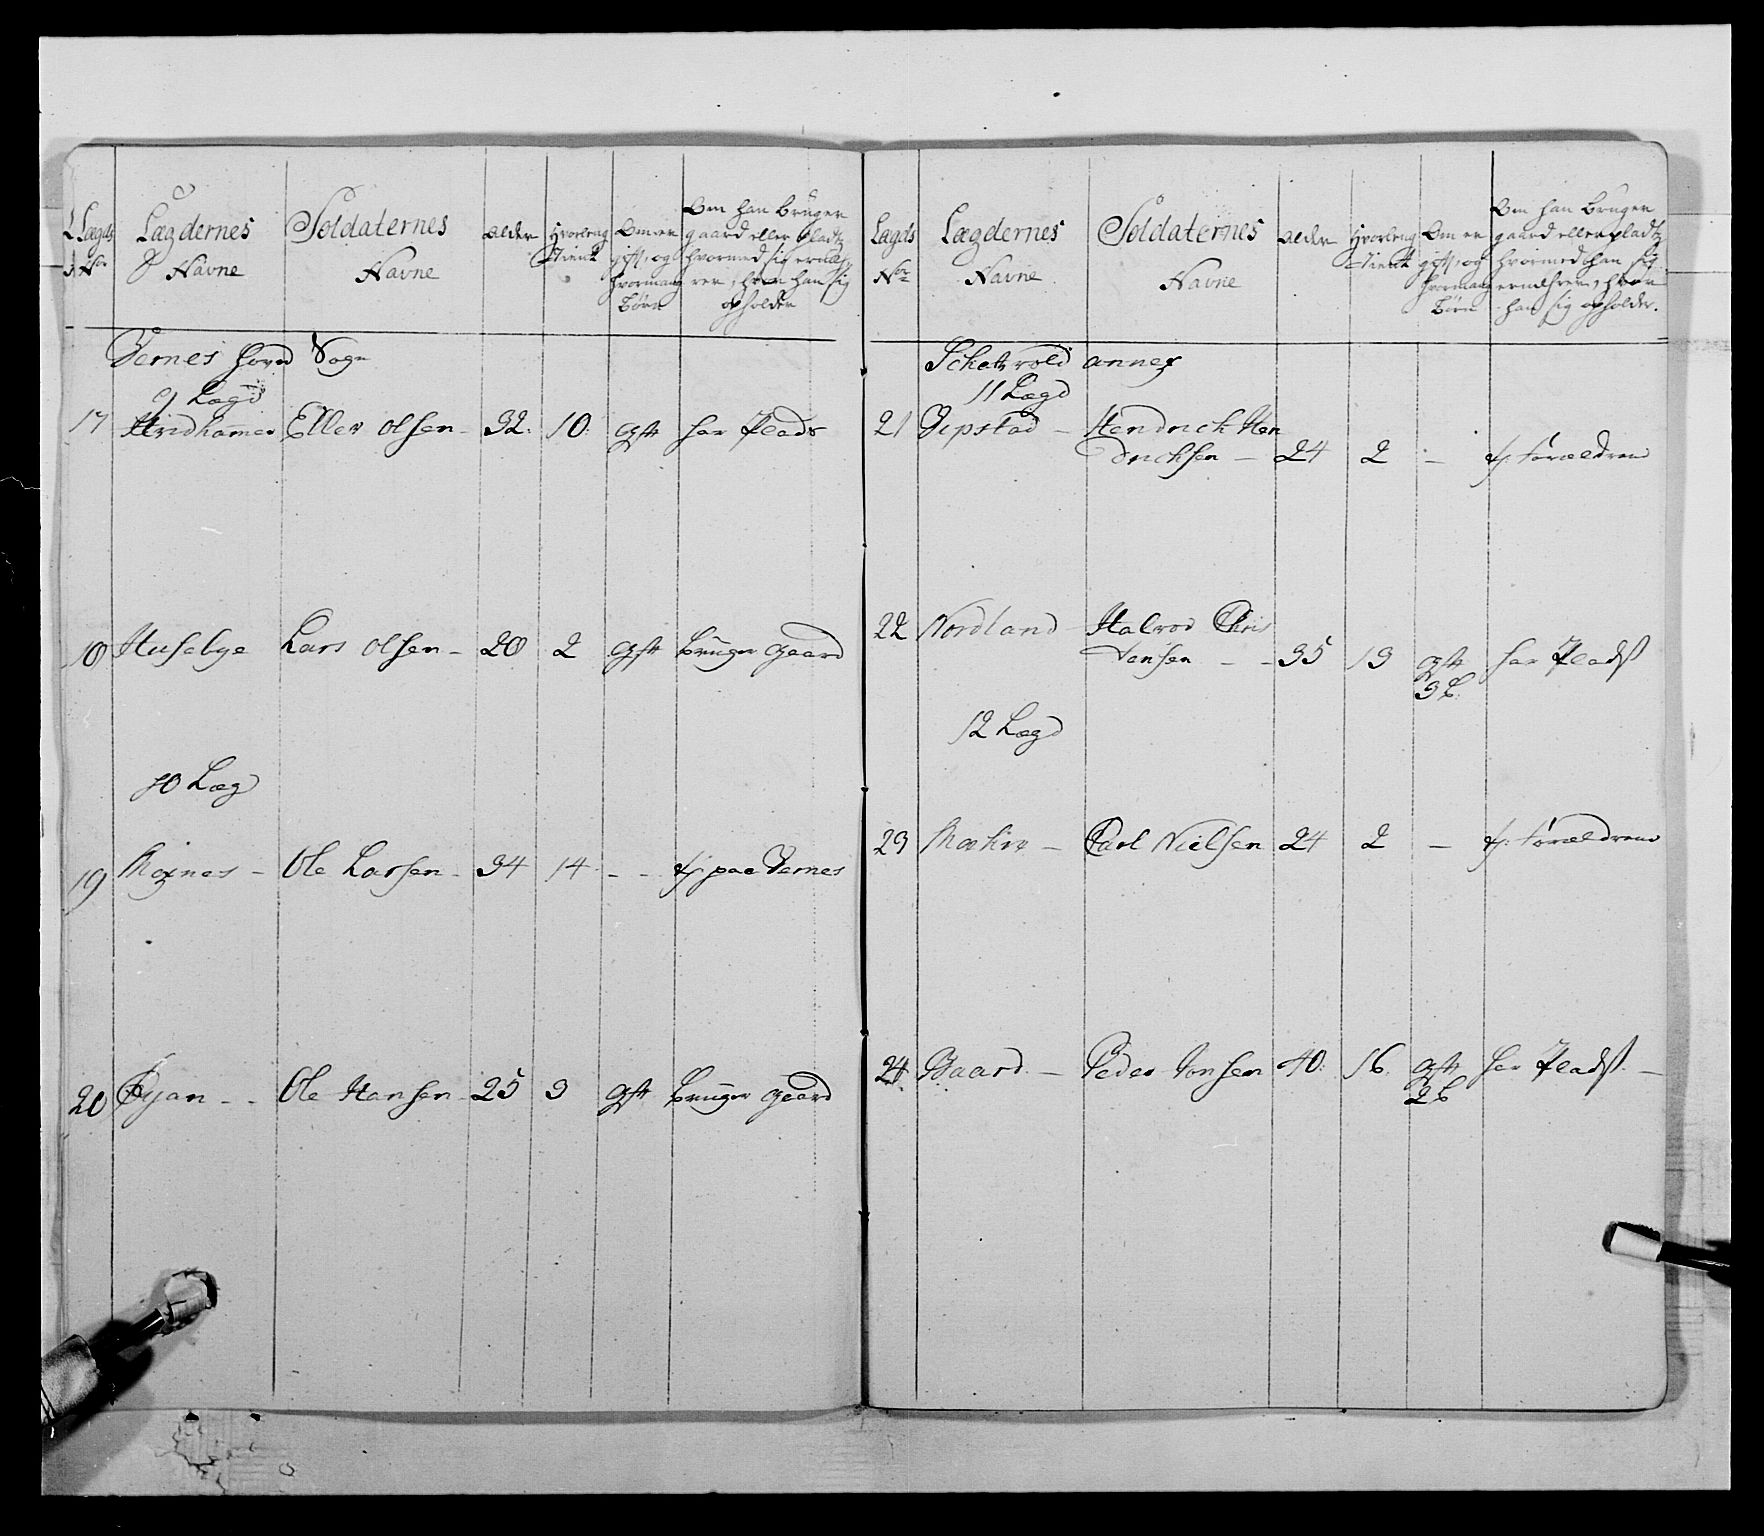 Lægds Nor
Lægdernes Navne
Soldaternes Navne
Alder
Hvorleng tient
Om er gift, og hvormang Børn
Om han bruger gaard eller pladtz hvormed sig ernæ rer, hvor han sig opholder
Vernes hoved Sogn
9 Lægd
17 Hridhammer Eller Olsen - 32. 10. gift har Plads
18 Huselye Lars Olsen - 28 2 gift bruger gaard
10 Læg
19 Moxnes - Ole Larsen - 34 14 - - t: paa Vernes
20 Øyan - - Ole Hansen - 25 3 gift bruger gaard
Lægds Nor
Lægdernes Navne
Soldaternes Navne
Alder
Hvorleng tient
Om er gift, og hvormang Børn
Om han bruger gaard eller pladtz hvormed han sig ernæhrer, hvor han sig opholder.
Schatvold annex
11 Lægd
21 Vepstad - Hendrich Hen
drichsen - 24 2 - t: forældrene
22 Nordland - Halvor Chris
tensen - - 35 13 gift har Pladst
3 b.
12 Lægd
23 - Carl Nielsen 24 2 - t: forældrene
24 Gaard - Peder Jonsen 40. 16. gift har Pladst. -
2 b